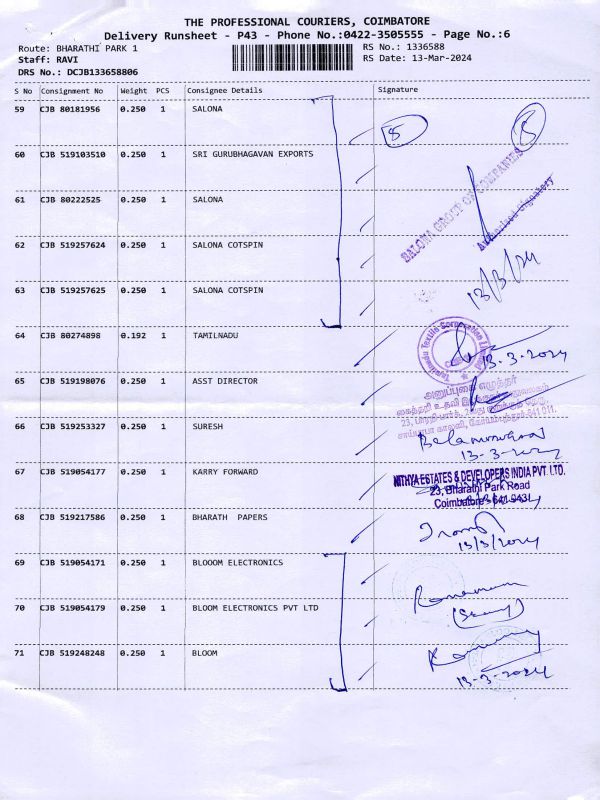 THE PROFESSIONAL COURIERS, COIMBATORE
Delivery Runsheet - P43 - Phone No.:0422-3505555 - Page No.:6
Route: BHARATHI PARK 1
RS No.: 1336588
Staff: RAVI
RS Date: 13-Mar-2024
DRS No.: DCJB133658806
S No Consignment No Weight PCS Consignee Details Signature
59 CJB 80181956 0.250 1 SALONA
5 5
60 CJB 519103510 0.250 1 SRI GURUBHAGAVAN EXPORTS
SALONA GROUP OF COMPANIES
Authorised Signatory
61 CJB 80222525 0.250 1 SALONA
62 CJB 519257624 0.250 1 SALONA COTSPIN
13/3/24
63 CJB 519257625 0.250 1 SALONA COTSPIN
64 CJB 80274898 0.192 1 TAMILNADU
Tamilnadu Textile Corporation Limited
13-3-2024
65 CJB 519198076 0.250 1 ASST DIRECTOR
அனுப்புகை எழுத்தர்
66 CJB 519253327 0.250 1 SURESH
67 CJB 519054177 0.250 1 KARRY FORWARD
NITHYA ESTATES & DEVELOPERS INDIA PVT. LTD.
23, Bharathi Park Road
Coimbatore - 641
68 CJB 519217586 0.250 1 BHARATH PAPERS
13/3/2024
69 CJB 519054171 0.250 1 BLOOOM ELECTRONICS
70 CJB 519054179 0.250 1 BLOOM ELECTRONICS PVT LTD
71 CJB 519248248 0.250 1 BLOOM
13-3-2024